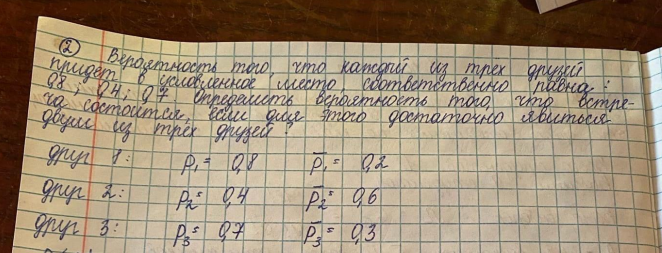 ② Вероятность того, что каждый из трех друзей
придет в условленное место, соответственно равна:
0,8; 0,4; 0,7 определить вероятность того, что встре-
ча состоится, если для этого достаточно явиться
двум из трех друзей?
друг 1: p₁ = 0,8 p̄₁ = 0,2
друг 2: p₂ = 0,4 p̄₂ = 0,6
друг 3: p₃ = 0,7 p̄₃ = 0,3